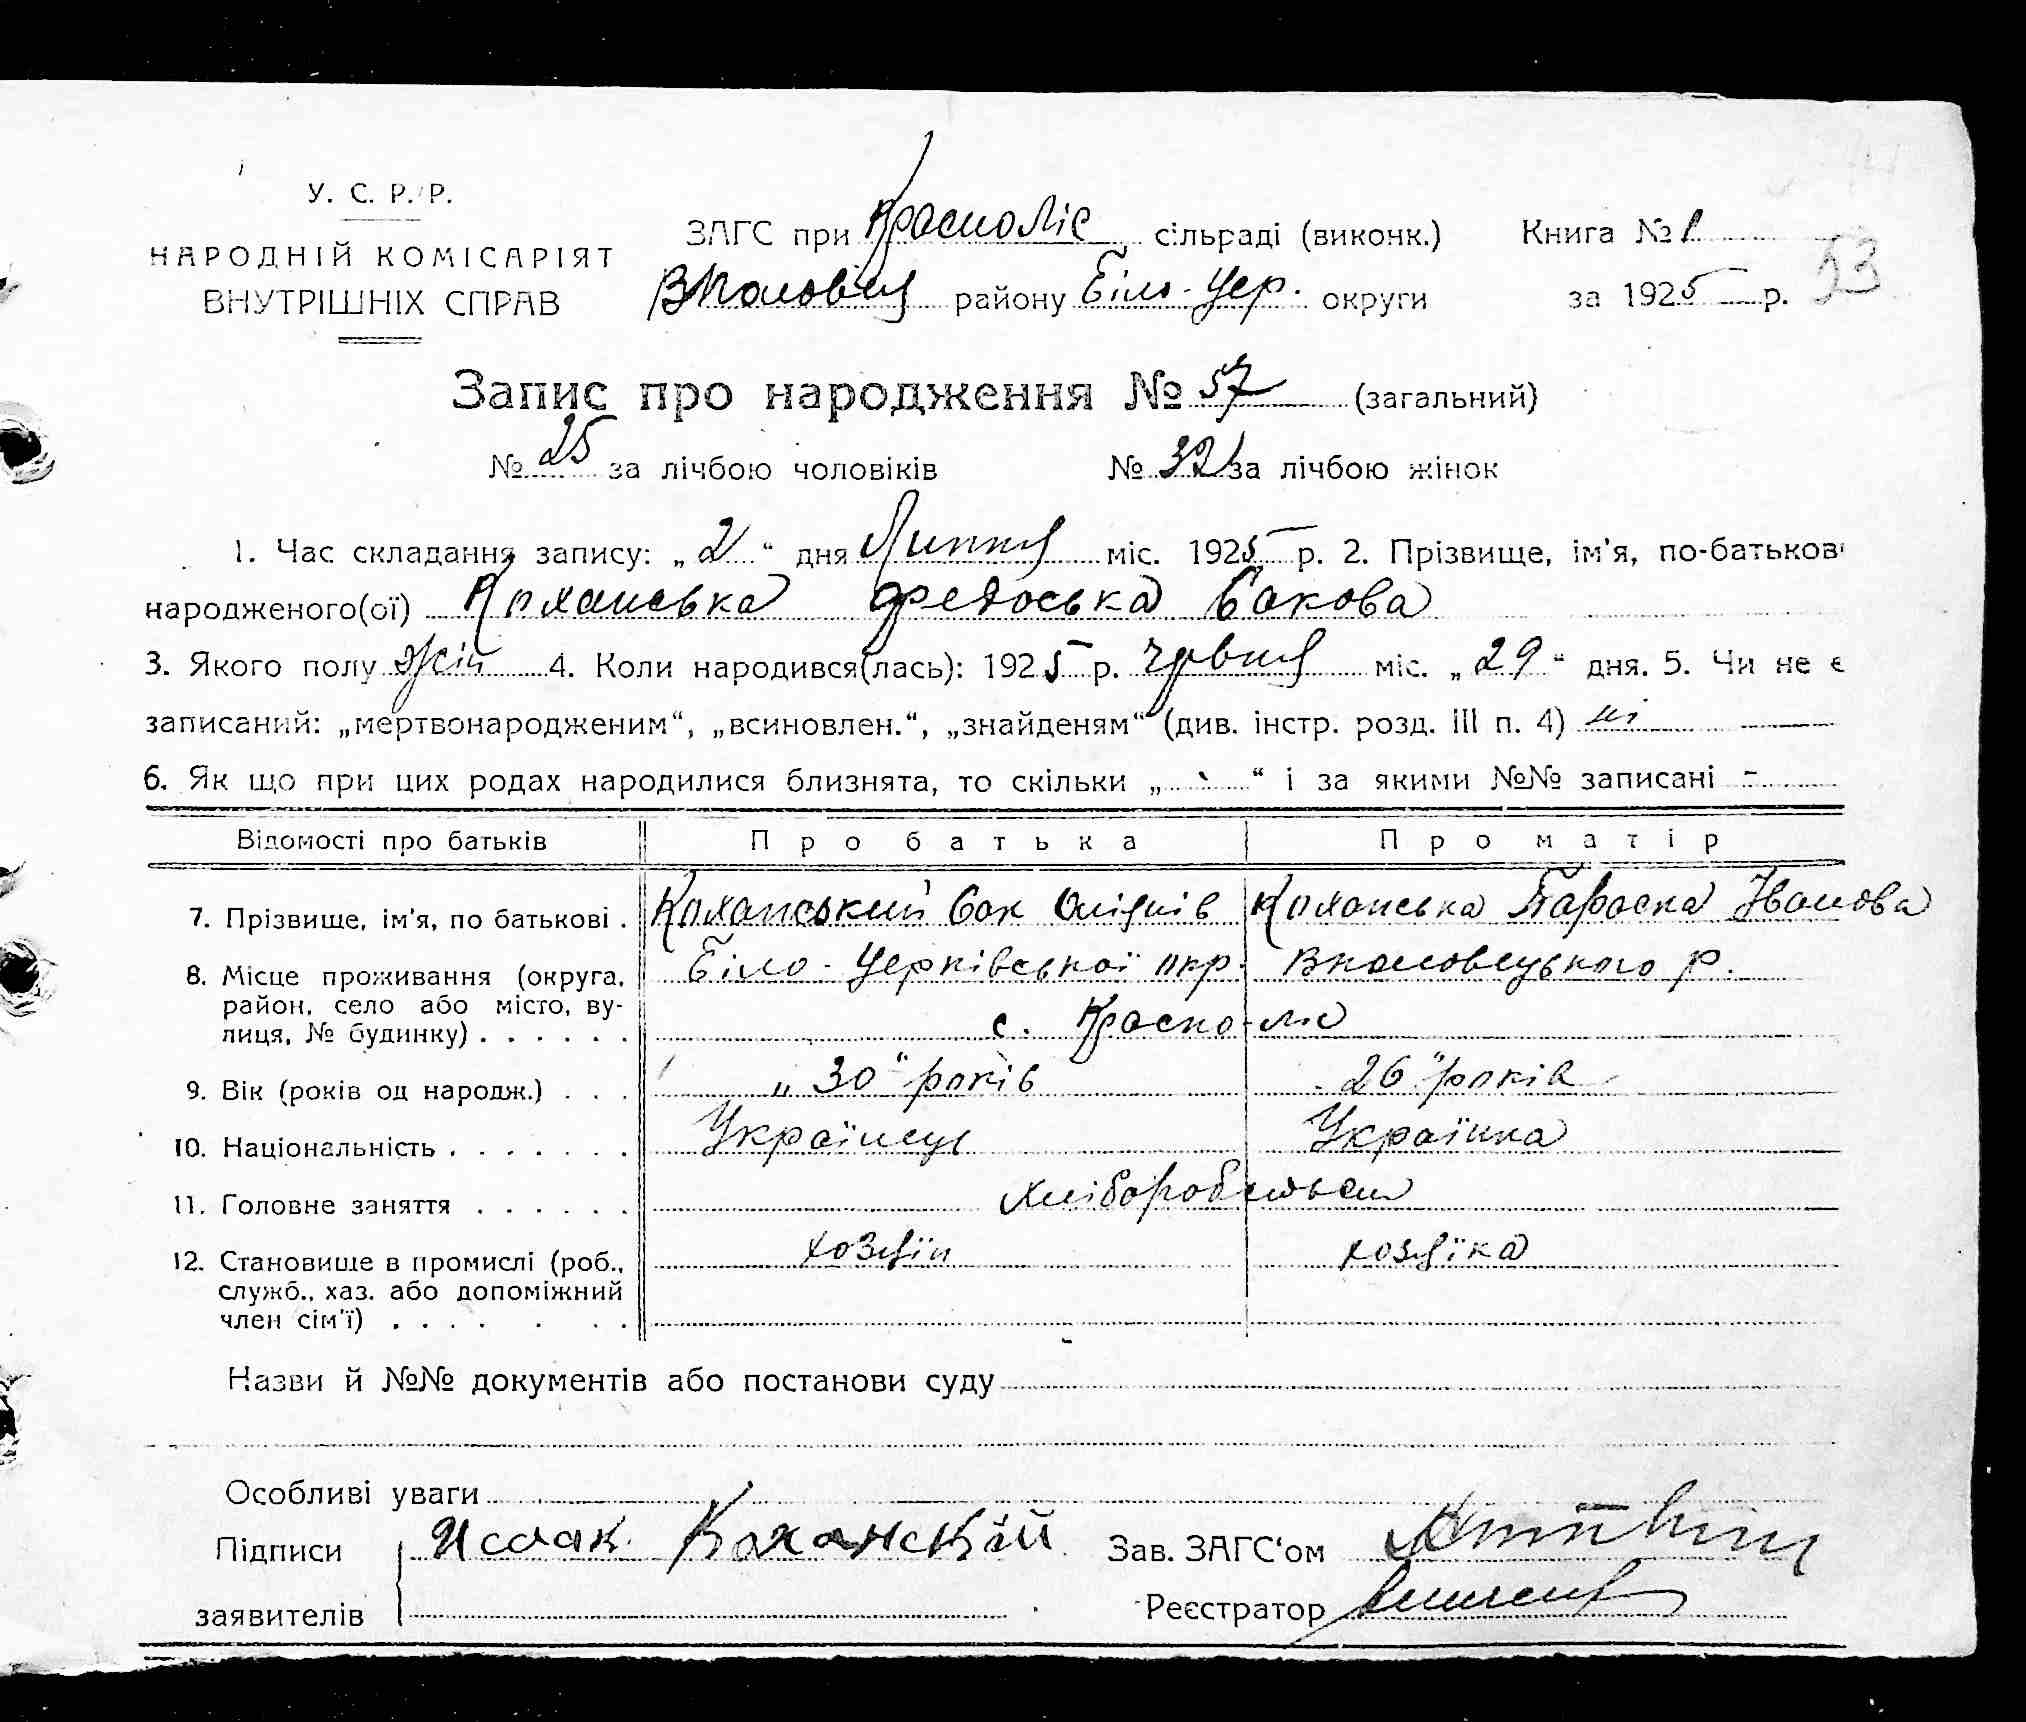 У. С. Р. Р.
НАРОДНІЙ КОМІСАРІЯТ
ВНУТРІШНІХ СПРАВ
ЗАГС при Красноліс сільраді (виконк.) Книга № 1
району Біло-Цер. округи за 1925 р. 53
Запис про народження № 57 (загальний)
№ 25 за лічбою чоловіків № 32 за лічбою жінок
1. Час складання запису: „ 2 “ дня Липня міс. 1925 р. 2. Прізвище, ім'я, по-батькові
народженого(ої) Коханська Федоська Сакова
3. Якого полу жін 4. Коли народився(лась): 1925 р. червня міс. „ 29 “ дня. 5. Чи не є
записаний: „мертвонародженим“, „всиновлен.“, „знайденям“ (див. інстр. розд. III п. 4) ні
6. Як що при цих родах народилися близнята, то скільки „ - “ і за якими №№ записані -
Відомості про батьків Про батька Про матір
7. Прізвище, ім'я, по батькові . Коханський Сак Коханська Параска Іванова
8. Місце проживання (округа, Біло-Церківської окр. Вполовецького р.
район, село або місто, ву-
лиця, № будинку) . . . . . . с. Красно-ліс
9. Вік (років од народж.) . . . „ 30 “ років „ 26 “ років
10. Національність . . . . . . . Українець Українка
11. Головне заняття . . . . . . хліборобство
12. Становище в промислі (роб., хозяїн хозяїка
служб., хаз. або допоміжний
член сім'ї) . . . . . . .
Назви й №№ документів або постанови суду
Особливі уваги
Підписи Исаак Коханский Зав. ЗАГС'ом
заявителів Реєстратор